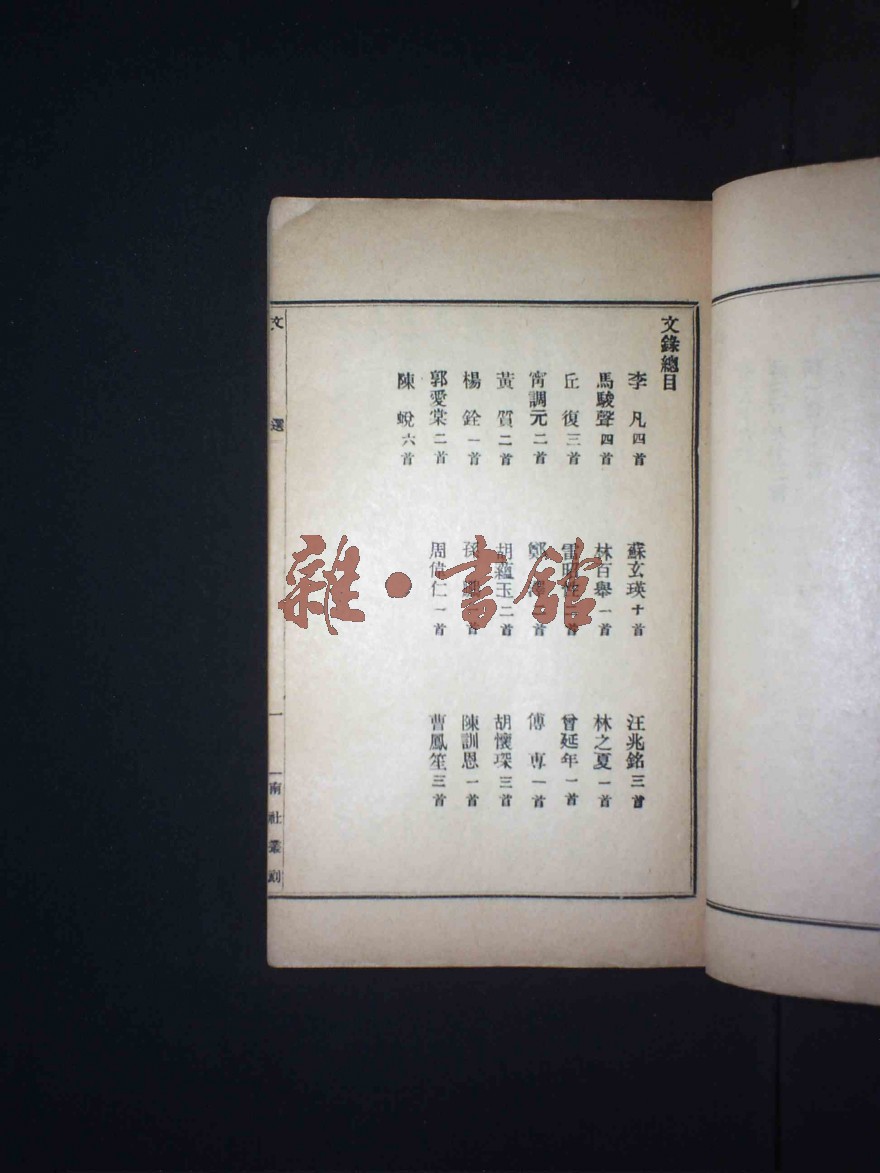 文錄總目
李凡四首 蘇玄瑛十首 汪兆銘三首
馬駿聲四首 林百舉一首 林之夏一首
丘復三首 雷昭性一首 曾延年一首
甯調元二首 鄭澤 首 傅專一首
黃質二首 胡蘊玉二首 胡懷琛三首
楊銓一首 孫 首 陳訓恩一首
郭愛棠二首 周偉仁一首 曹鳳笙三首
陳蛻六首
文選
一
南社叢刻
雜·書館